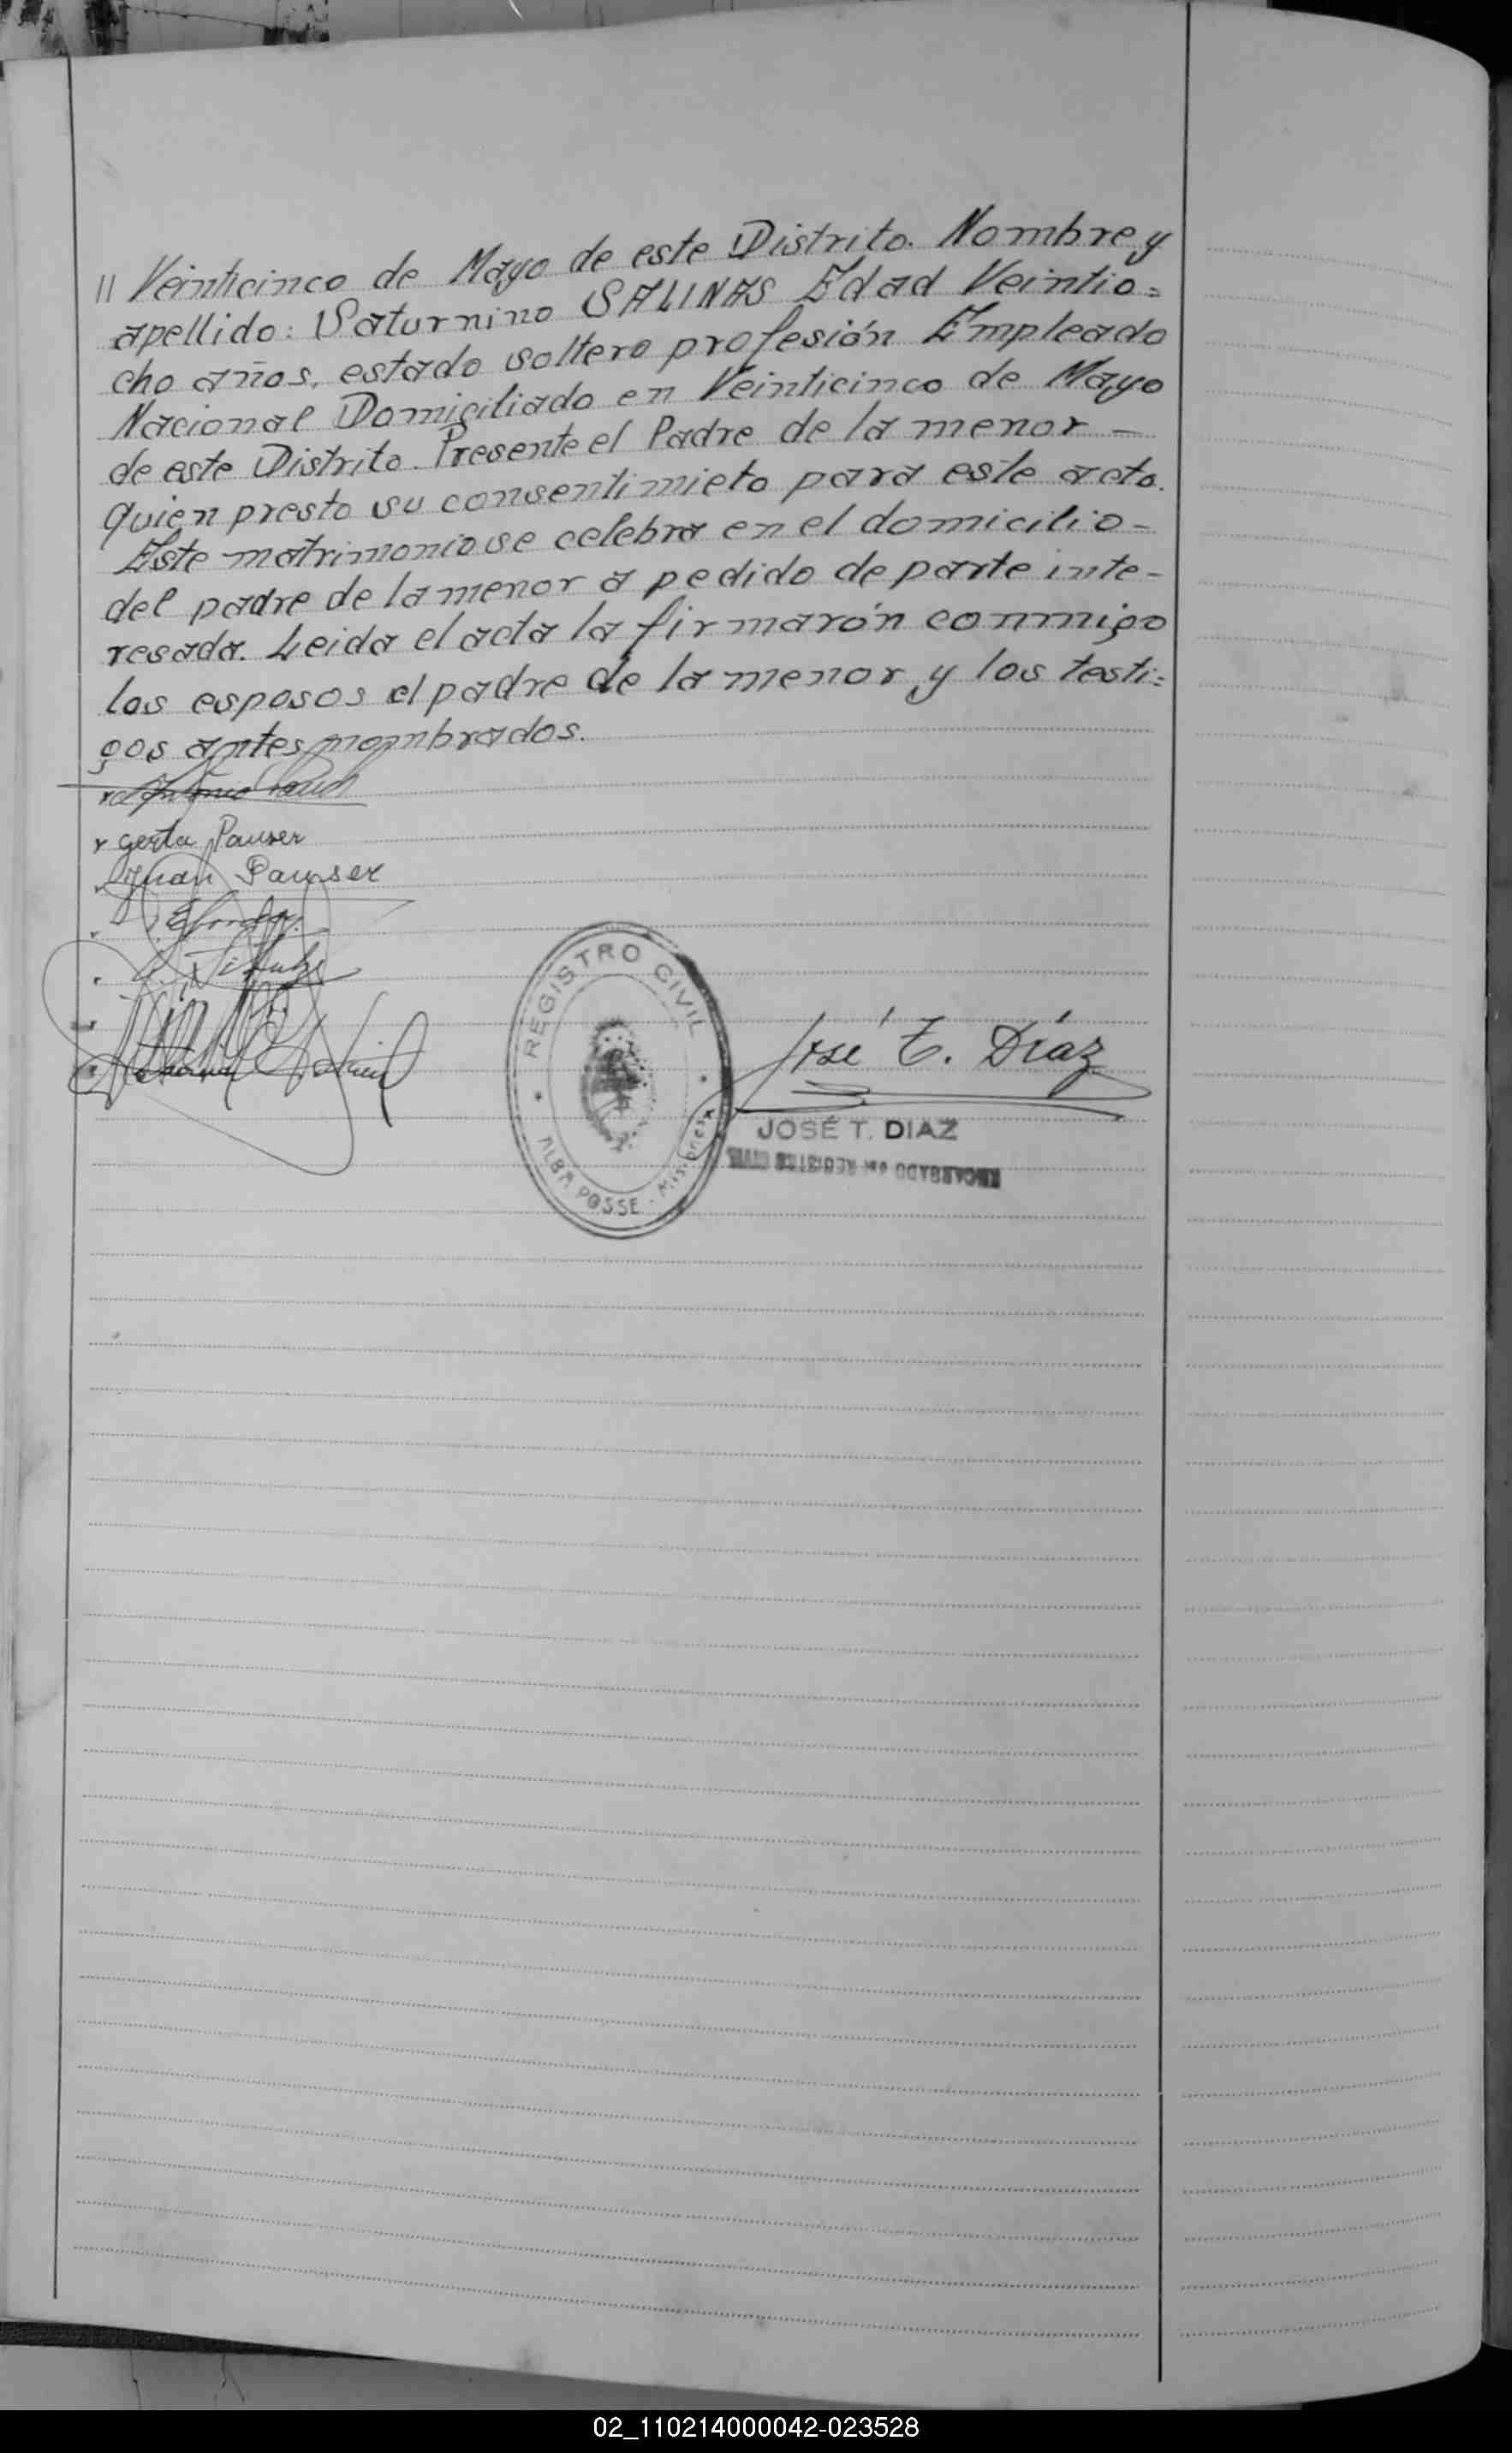 // Veinticinco de Mayo de este Distrito. Nombre y
apellido: Saturnino SALINAS Edad Veintio=
cho años, estado soltero profesión Empleado
Nacional Domiciliado en Veinticinco de Mayo
de este Distrito. Presente el Padre de la menor —
quien presto su consentimieto para este acto.
Este matrimonio se celebra en el domicilio-
del padre de la menor a pedido de parte inte-
resada. Leida el acta la firmarón conmigo
los esposos el padre de la menor y los testi=
gos antes nombrados.
Antonio
gerta Pauser
Juan Pauser
REGISTRO CIVIL
ALBA POSSE - Misiones
José T. Díaz
JOSÉ T. DIAZ
ENCARGADO DEL REGISTRO CIVIL
02_110214000042-023528